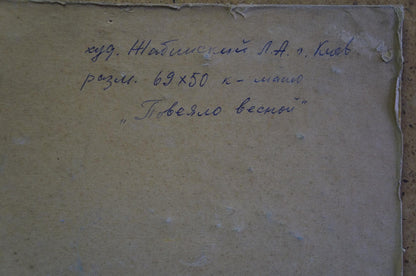 худ. Жабинский Л.А. г. Киев
разм. 69х50 к-масло
„Повеяло весной"